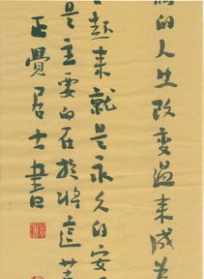 的人生改變過來成為
起來就是永久的安
是主要的在於將這
正覺居士書